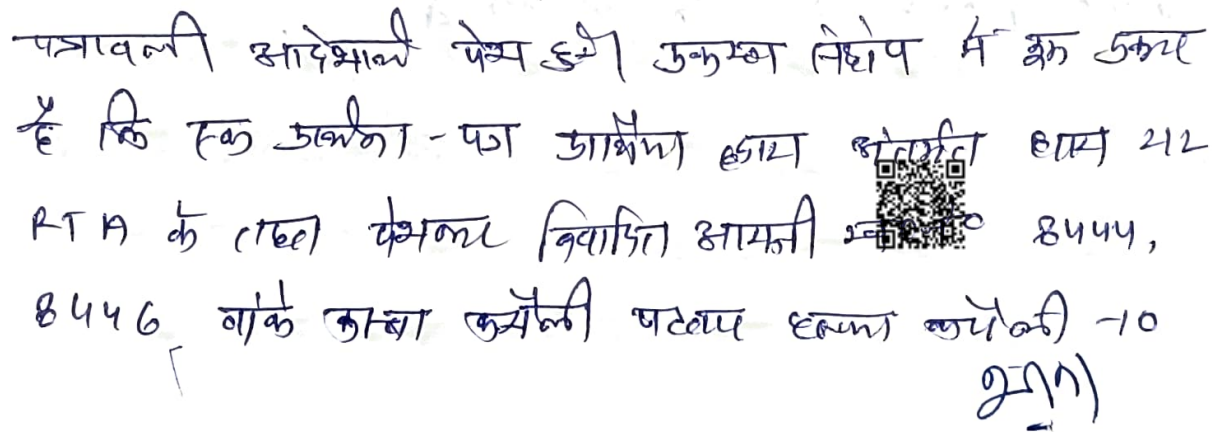 पत्रावली आदेशार्थ पेश हुई। प्रकरण संक्षेप में इस प्रकार
है कि एक प्रार्थना-पत्र प्रार्थीगण द्वारा अंतर्गत धारा 212
RTA के तहत पेशकर विवादित आराजी 8444,
8446 वाके कस्बा पटवार हल्का -10